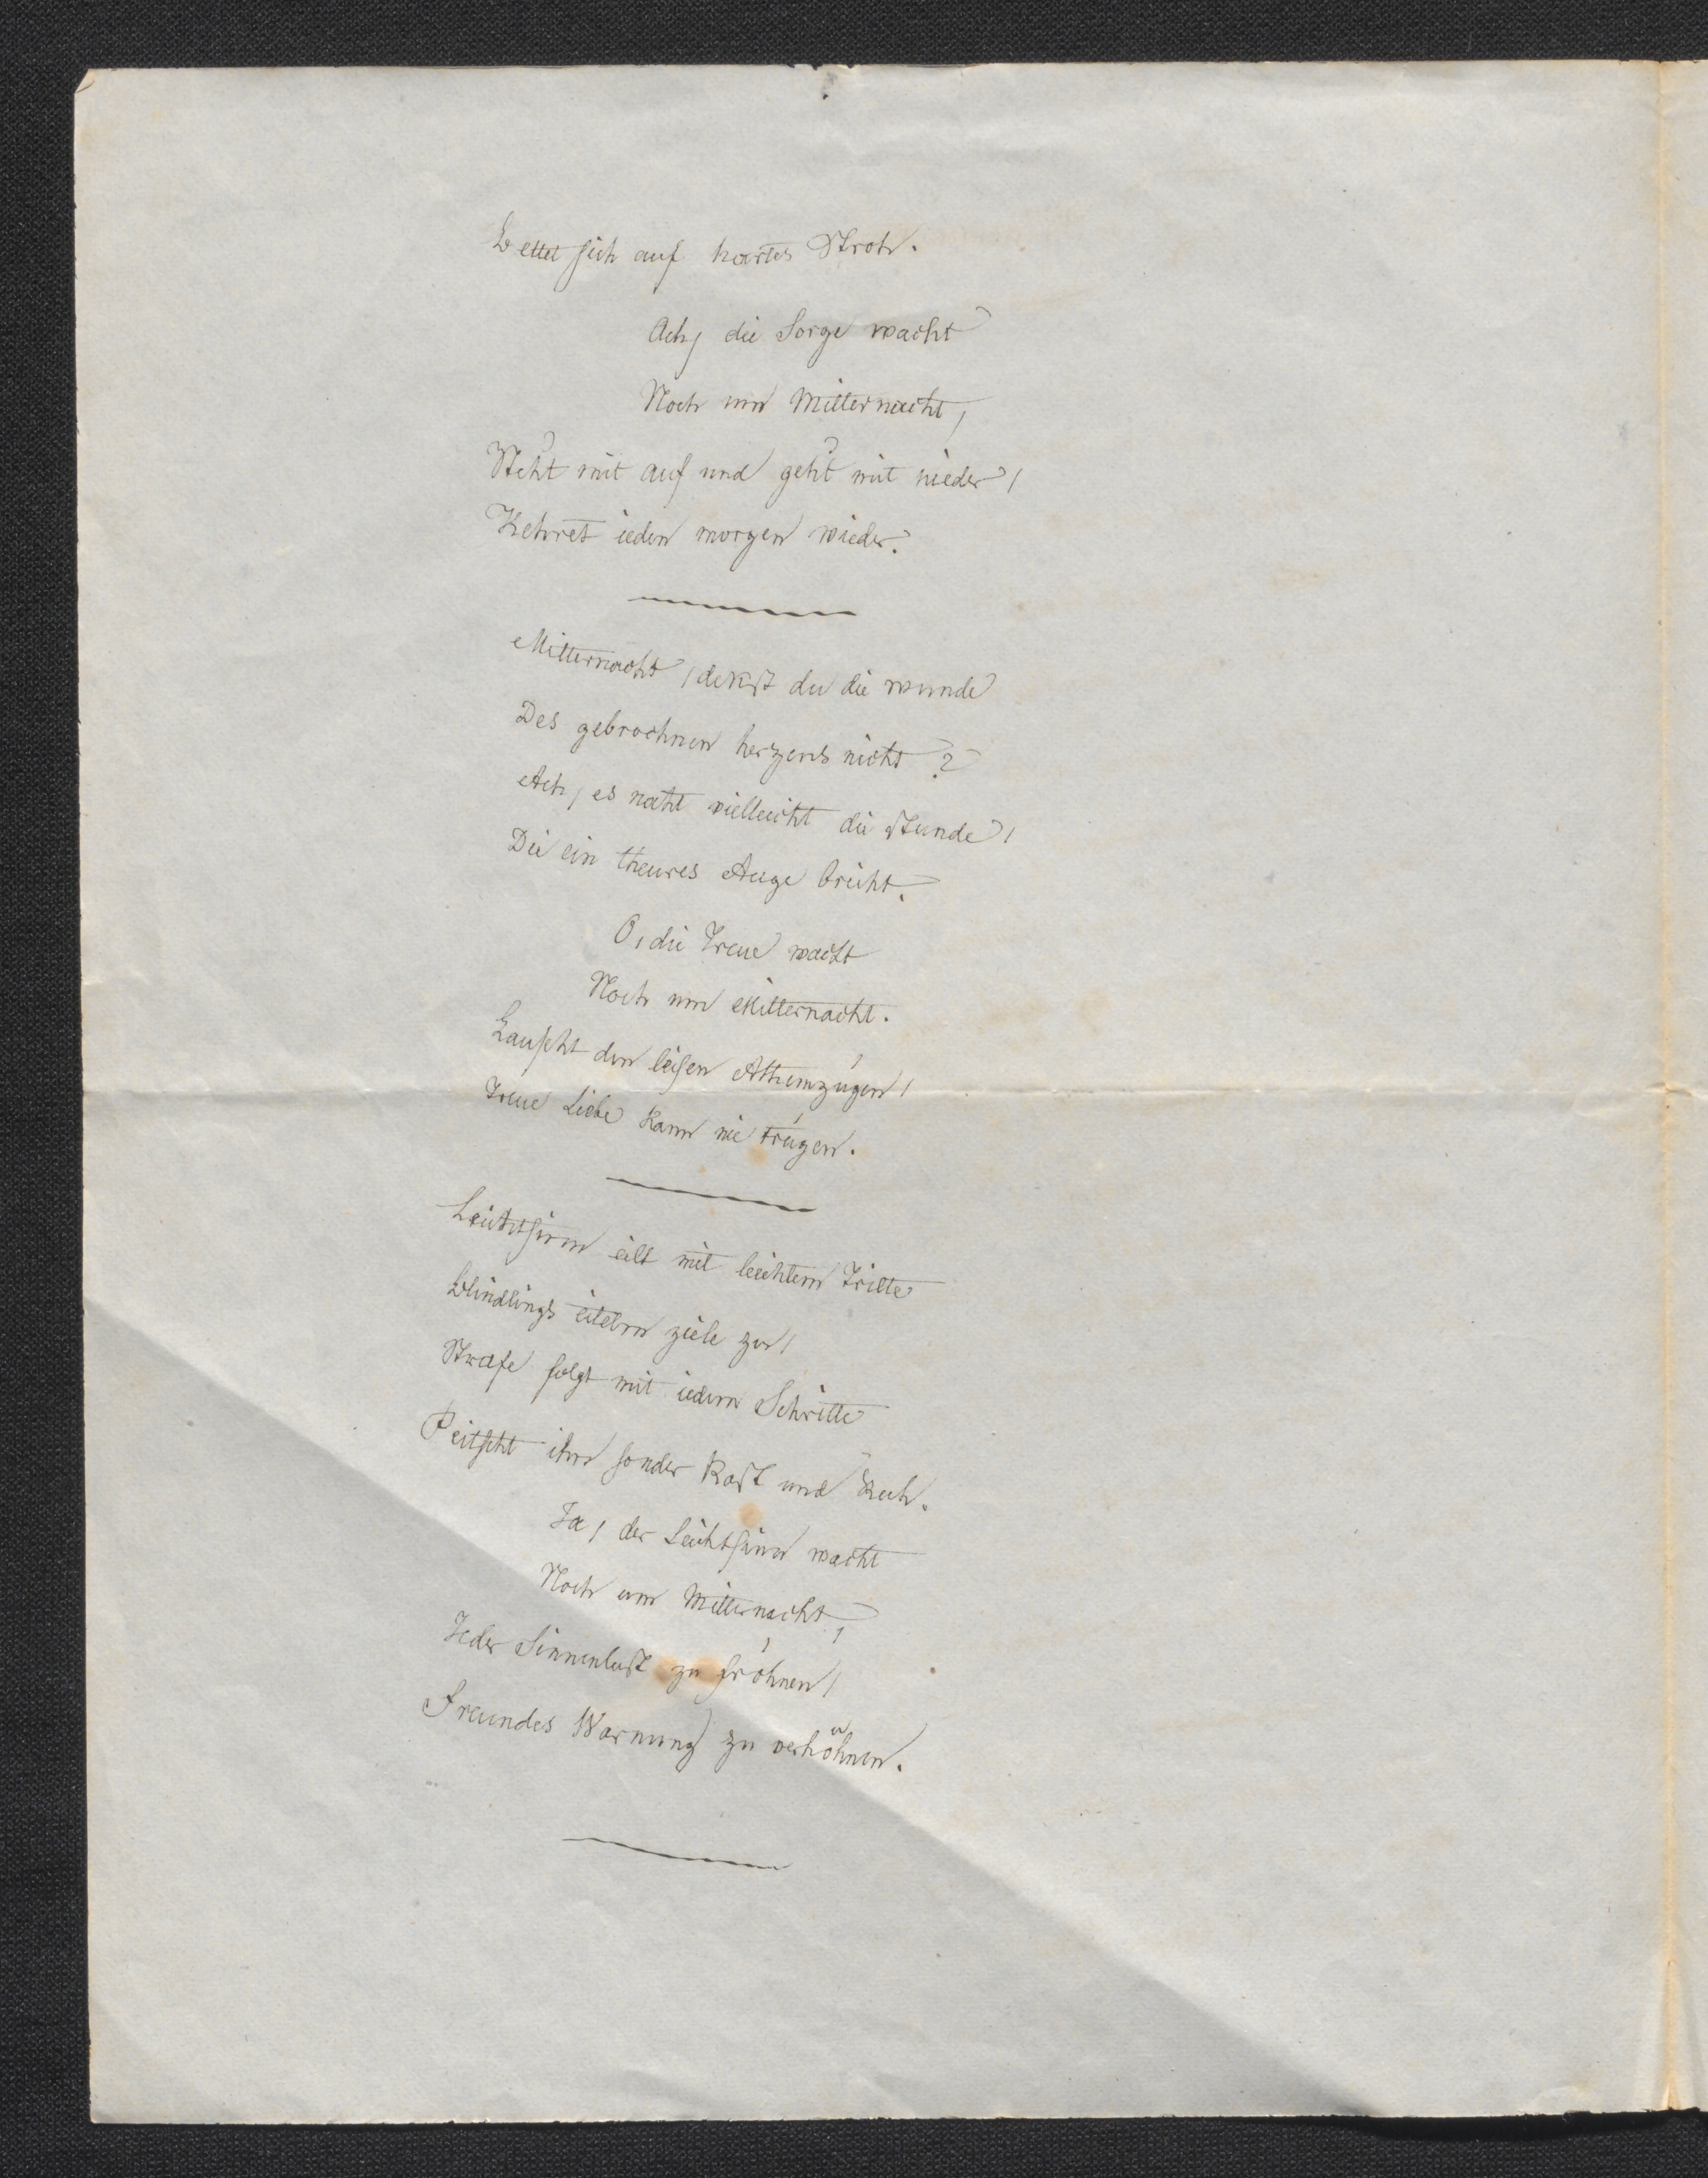 Bettet sich auf hartes Stroh.
Ach, die Sorge wacht
Noch um Mitternacht,
Steht mit auf und geht mit nieder,
Kehret ieden morgen wieder.
Mitternacht, dekst du die wunde
Des gebrochnen herzens nicht?
Ach, es naht vielleicht die Stunde,
Die ein theures Auge bricht.
O, die Treue wacht
Noch um Mitternacht.
Lauscht den leisen Athemzügen,
Treue Liebe kann nie trügen.
Leichtsinn eilt mit leichtem Tritte
Blindlings eitelem ziele zu,
Strafe folgt mit iedem Schritte
Peitscht ihn sonder Rast und Ruh.
Ja, der Leichtsinn wacht
Noch um Mitternacht,
Jeder Sinnenlust zu fröhnen,
Freundes Warnung zu verhöhnen.